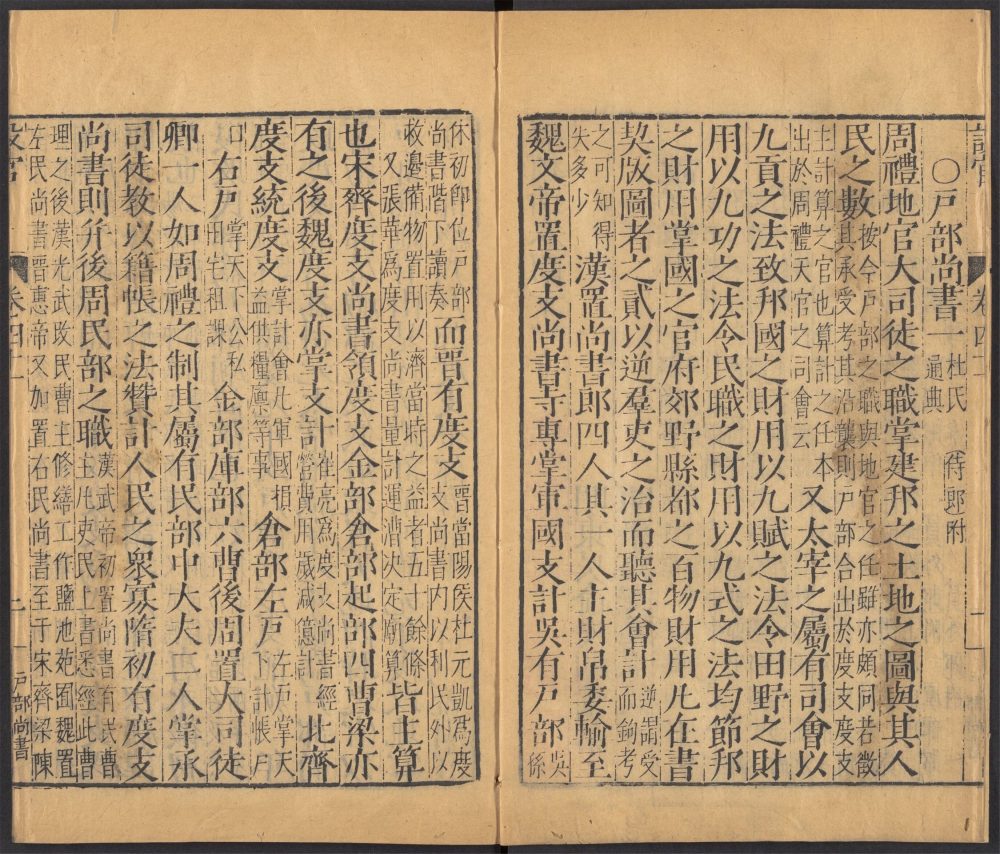 ○戶部尚書一 杜氏通典 侍郎附
周禮地官大司徒之職掌建邦之土地之圖與其人
民之數 按今戶部之職與地官之任雖亦頗同若徵其承受考其沿襲則戶部合出於度支度支
主計算之官也算計之任本出於周禮天官之司會云 又太宰之屬有司會以
九貢之法致邦國之財用以九賦之法令田野之財
用以九功之法令民職之財用以九式之法均節邦
之財用掌國之官府郊野縣都之百物財用凡在書
契版圖者之貳以逆羣吏之治而聽其會計 逆謂受而鉤考
之可知得失多少 漢置尚書郎四人其一人主財帛委輸至
魏文帝置度支尚書寺專掌軍國支計吳有戶部 吳係
休初即位戶部尚書階下讀奏 而晉有度支 晉當陽侯杜元凱為度支尚書內以利民外以
救邊備物置用以濟當時之益者五十餘條又張華為度支尚書量計運漕決定廟算 皆主算
也宋齊度支尚書領度支金部倉部起部四曹梁亦
有之後魏度支亦掌支計 崔亮為度支尚書經營費用歲減億計 北齊
度支統度支 掌計會凡軍國損益供糧廩等事 倉部左戶 左右掌天下計帳戶
口 右戶 掌天下公私田宅租課 金部庫部六曹後周置大司徒
卿一人如周禮之制其屬有民部中大夫二人掌承
司徒教以籍帳之法贊計人民之衆寡隋初有度支
尚書則并後周民部之職 漢武帝初置尚書有民曹主凡吏民上書悉經此曹
理之後漢光武改民曹主修繕工作鹽池苑囿魏置左民尚書晉惠帝又加置右民尚書至于宋齊梁陳
卷四十一 一 戶部尚書